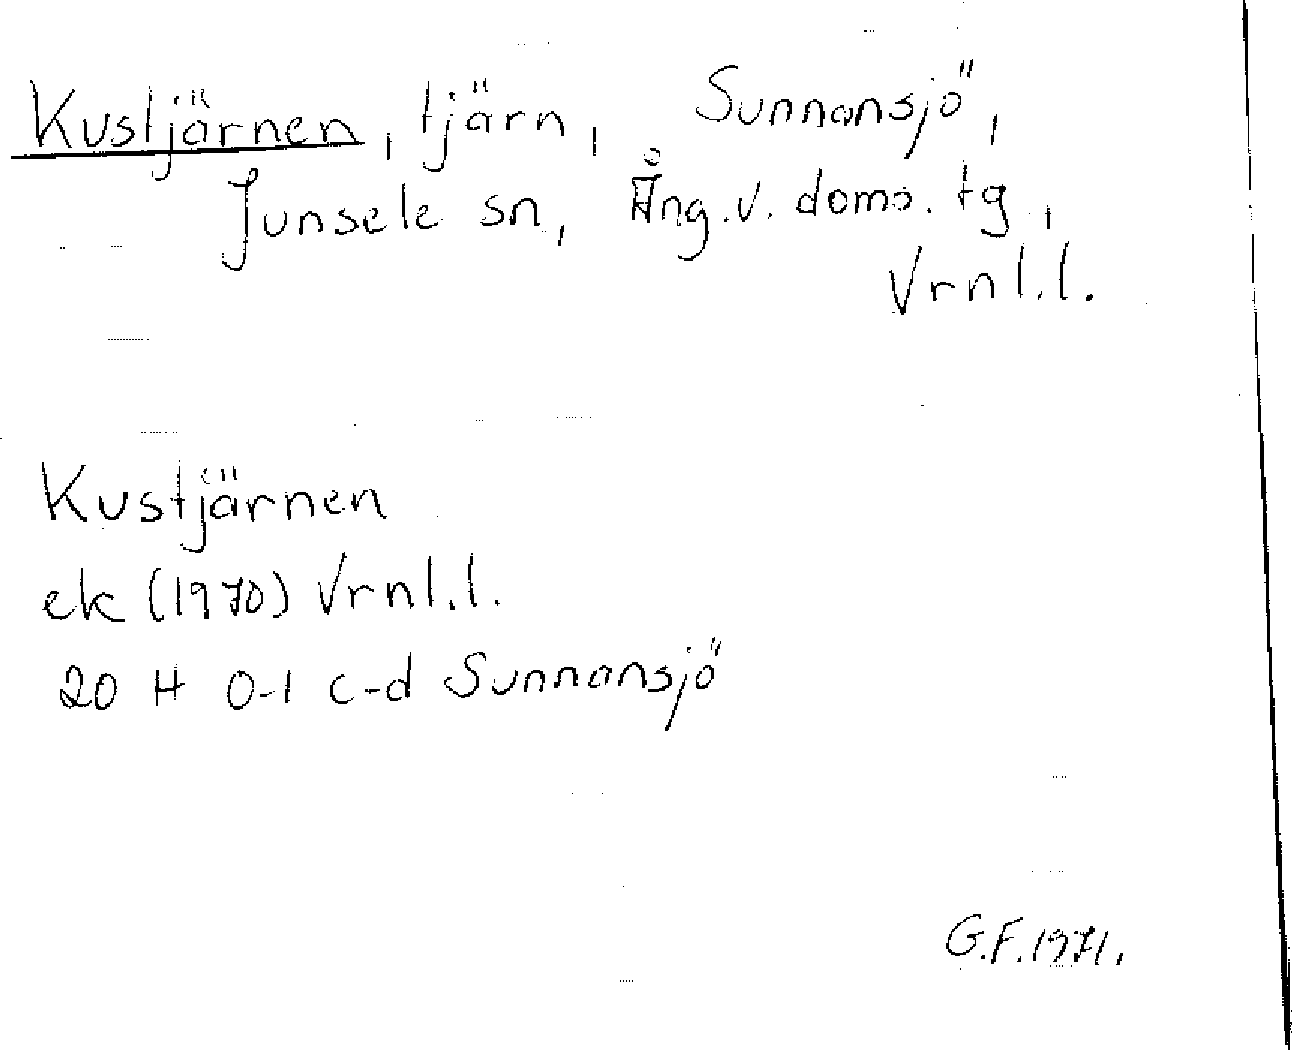 Kustjärnen, tjärn, Sunnansjö,
Junsele sn, Ång.v. doms. tg,
Vrnl.l.
Kustjärnen
ek (1970) Vrnl.l.
20 H 0-1 c-d Sunnansjö
G.F. 1971.